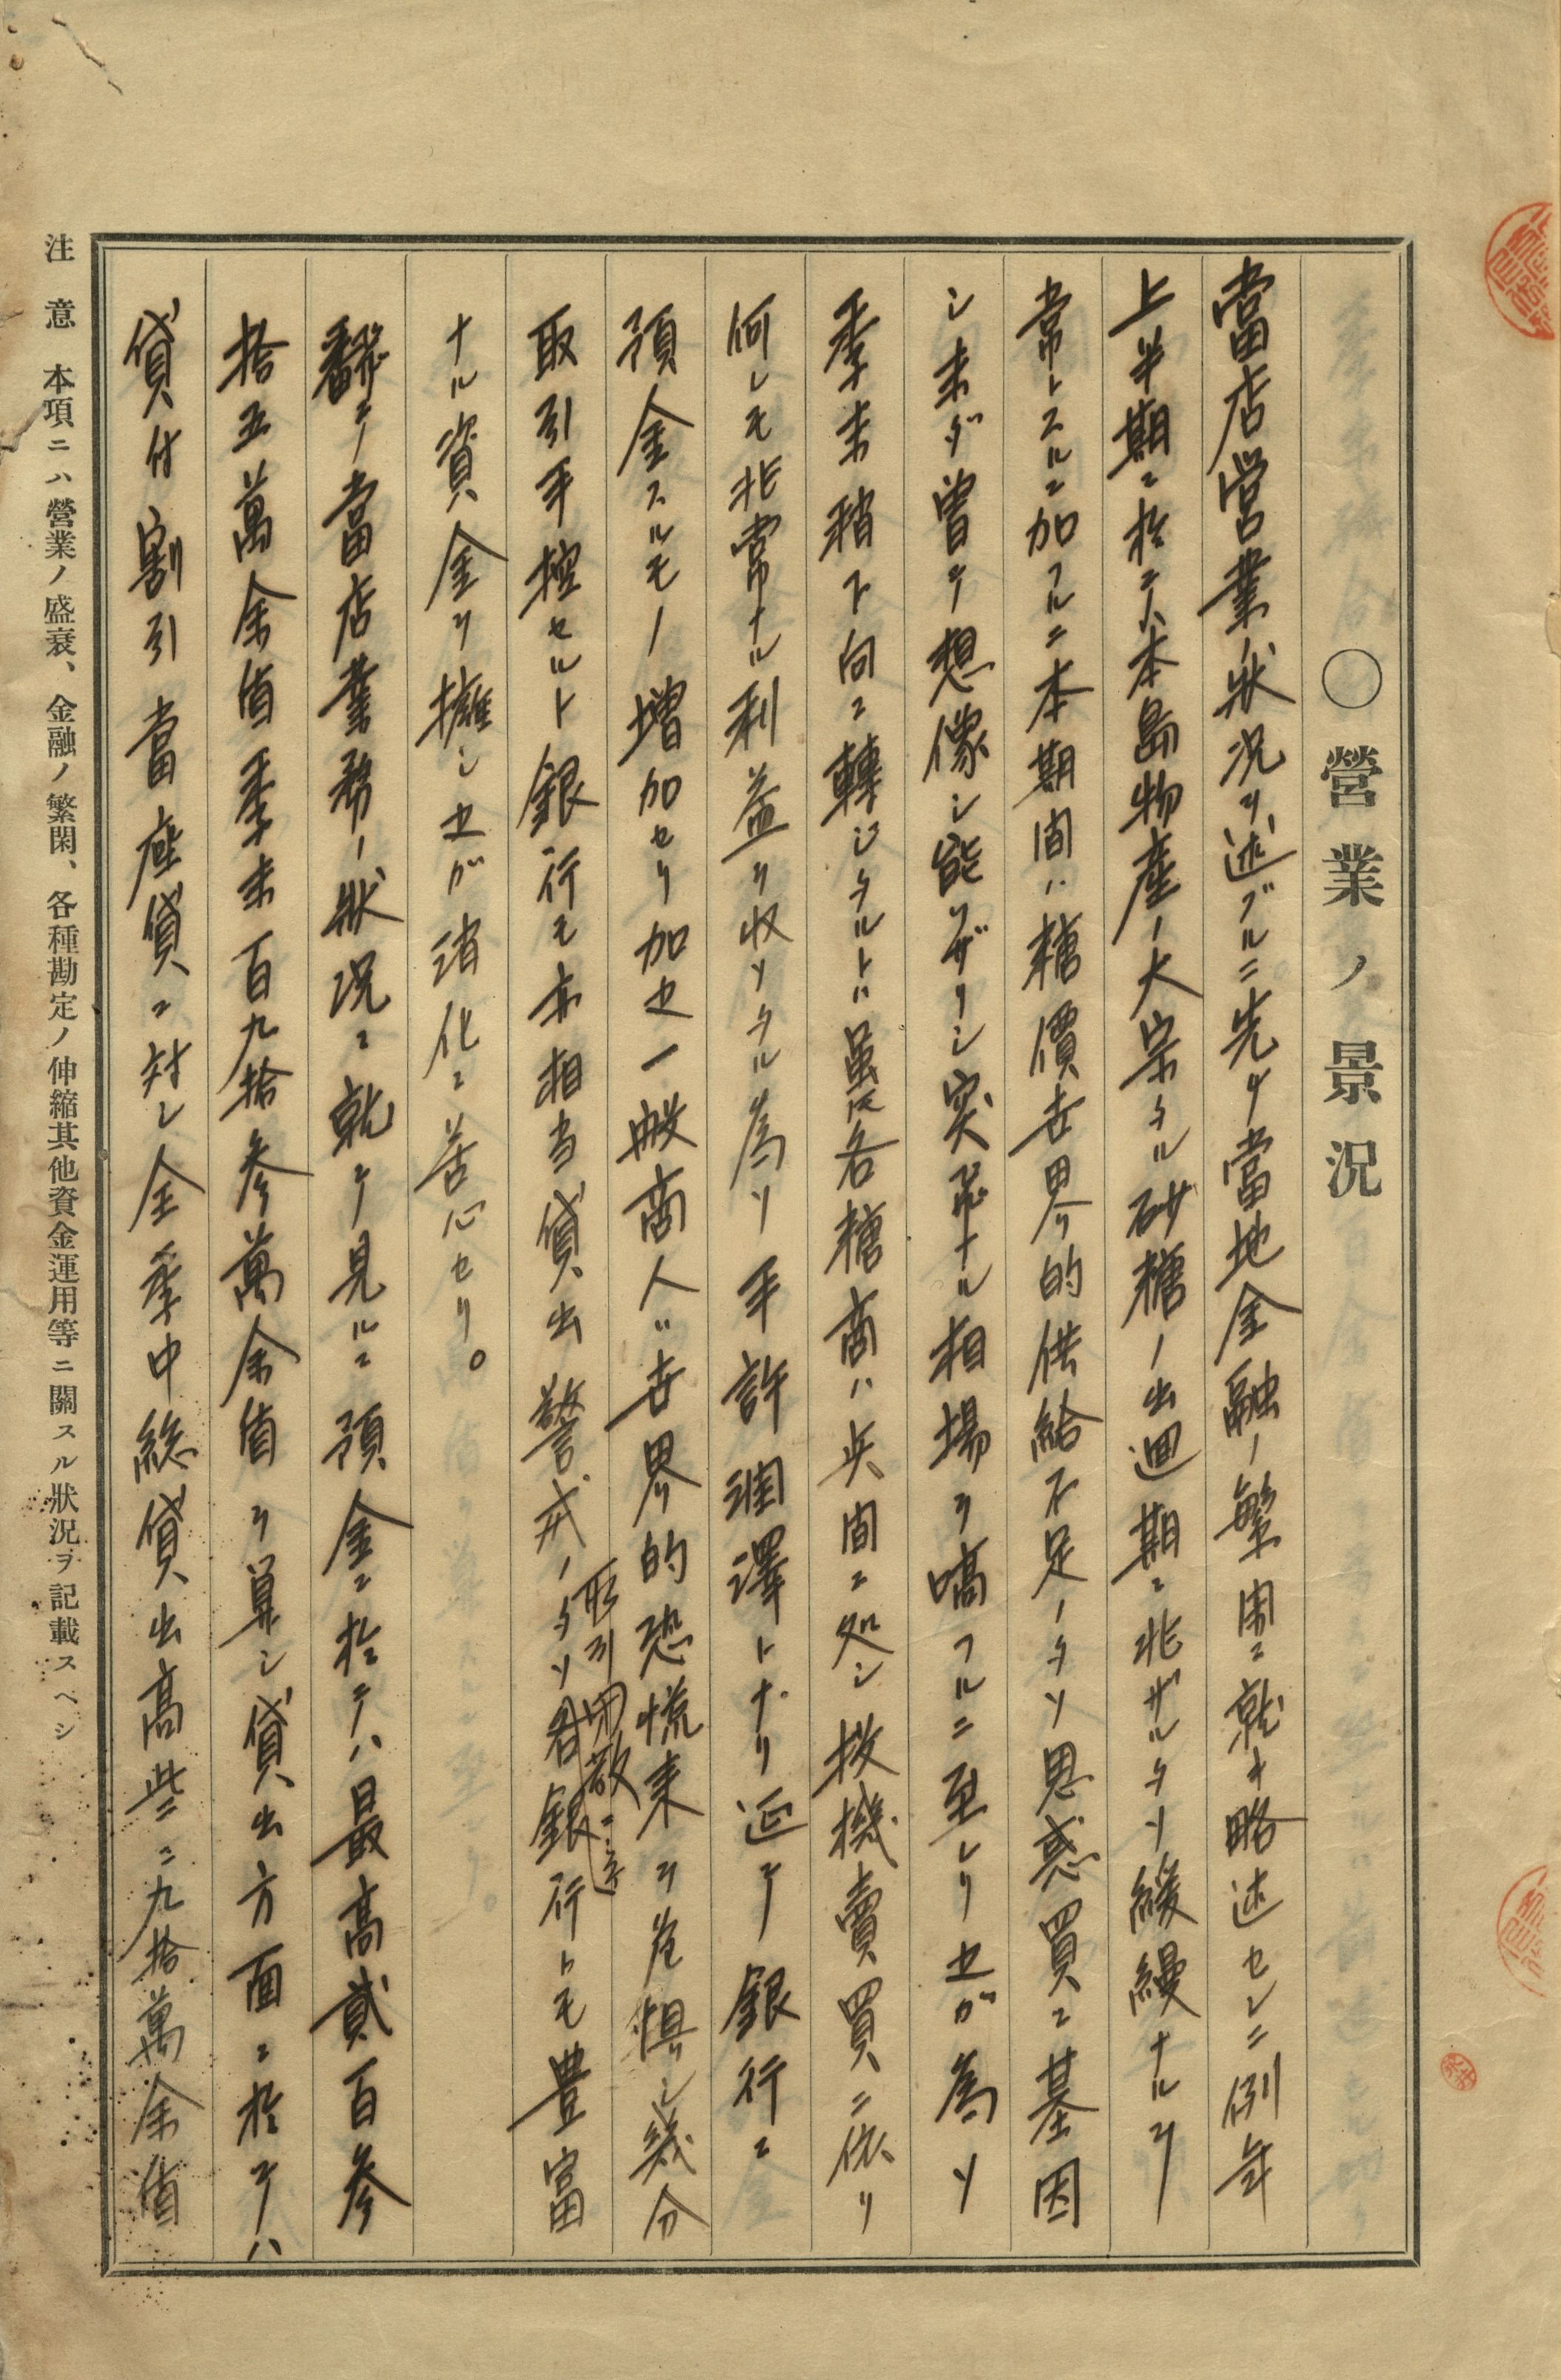 〇營業ノ景況
當店営業ノ狀況ヲ述ブルニ先ダ當地金融ノ繁閑ニ就キ略述センニ例年
上半期ニ於テハ本島物產ノ大宗タル砂糖ノ出廻期ニ非ザルタメ緩縵ナルヲ
常トスルニ加フルニ本期間ハ糖價世界的供給不足ノタメ思惑買ニ基因
シ未ダ曾テ想像シ能ハザリシ突飛ナル相場ヲ唱フルニ至レリ之ガ為メ
季末稍下向ニ轉ジタルトハ虽氏各糖商ハ此間ニ処シ投機賣買ニ依リ
何レモ非常ナル利益ヲ収メタル為メ手許潤澤トナリ延テ銀行ニ
預金スルモノ増加セリ加之一般商人ハ世界的恐慌来ヲ危惧シ幾分
取引手控セルト銀行モ亦相当貸出警戒ノタメ各銀行トモ豊富
ナル資金ヲ擁シ之ガ消化ニ苦心セリ。
飜テ當店業務ノ狀況ニ就テ見ルニ預金ニ於テハ最高貳百参
拾五萬余値季末百九拾参萬余値ヲ算シ貸出方面ニ於テハ
貸付割引當座貸ニ対シ全季中総貸出高些ニ九拾萬余値
注意 本項ニハ營業ノ盛衰、金融ノ繁閑、各種勘定ノ伸縮其他資金運用等ニ關スル狀況ヲ記載スヘシ